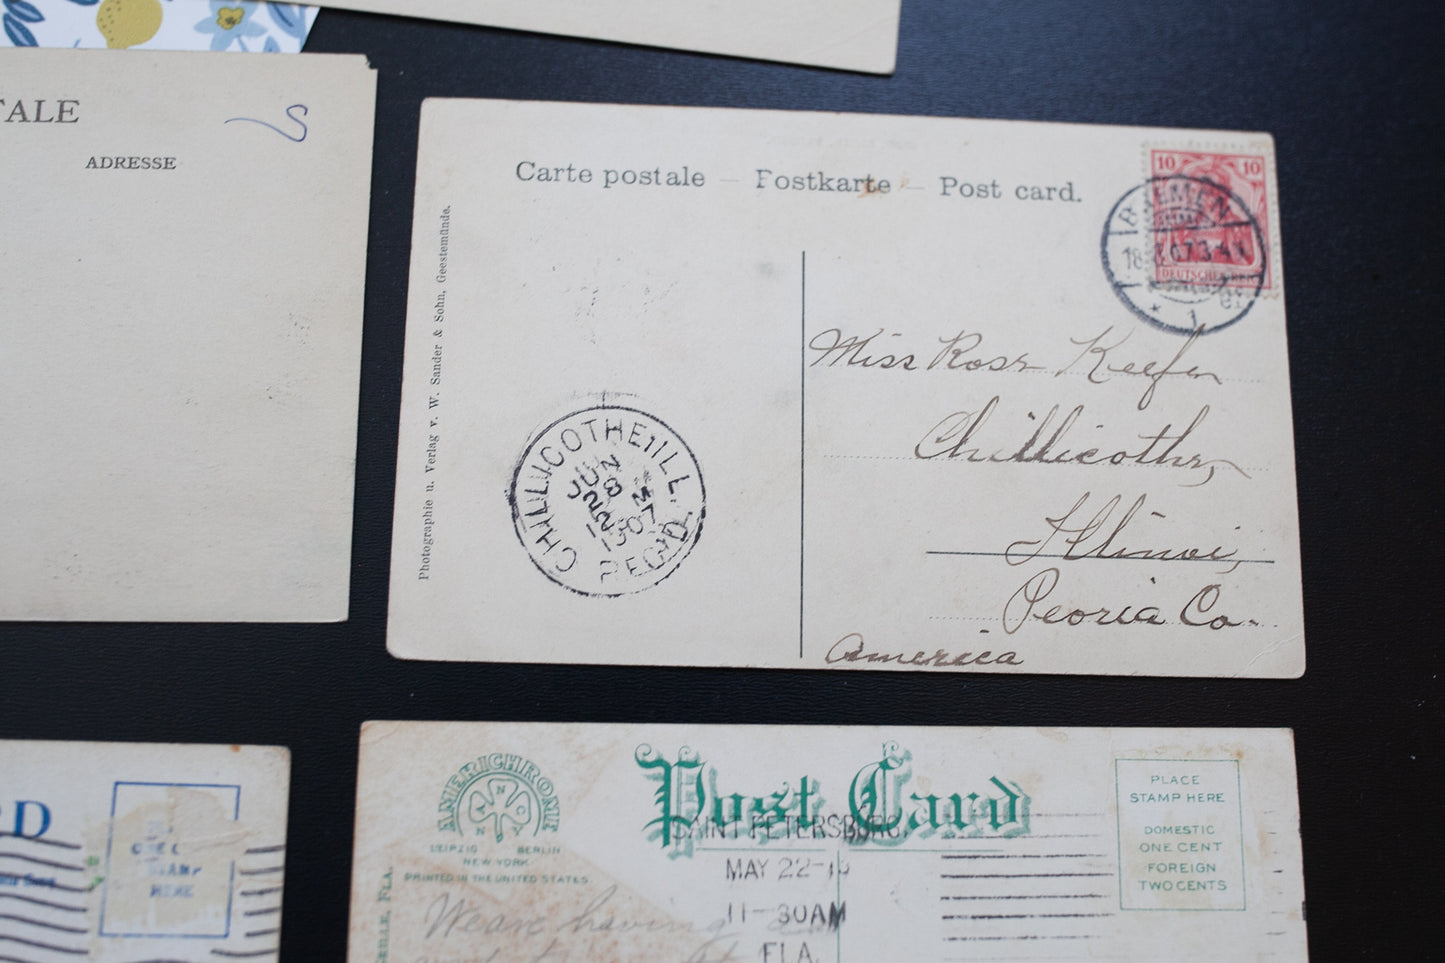 TALE
ADRESSE
Carte postale — Postkarte — Post card.
Photographie u. Verlag v. W. Sander & Sohn, Geestemünde.
10 10
DEUTSCHES
BREMEN
07.3-4
1
Miss Rose Keefer
Chillicothe,
Illinois,
Peoria Co.
America
CHILLICOTHE, ILL.
JUN
28
1907
REC'D.
D
HERE
AMERICHROME
ANCO
LEIPZIG BERLIN
NEW YORK
PRINTED IN THE UNITED STATES
Post Card
PLACE
STAMP HERE
DOMESTIC
ONE CENT
FOREIGN
TWO CENTS
SAINT PETERSBURG,
MAY 22-
11-30AM
FLA.
FLA.
We are having a